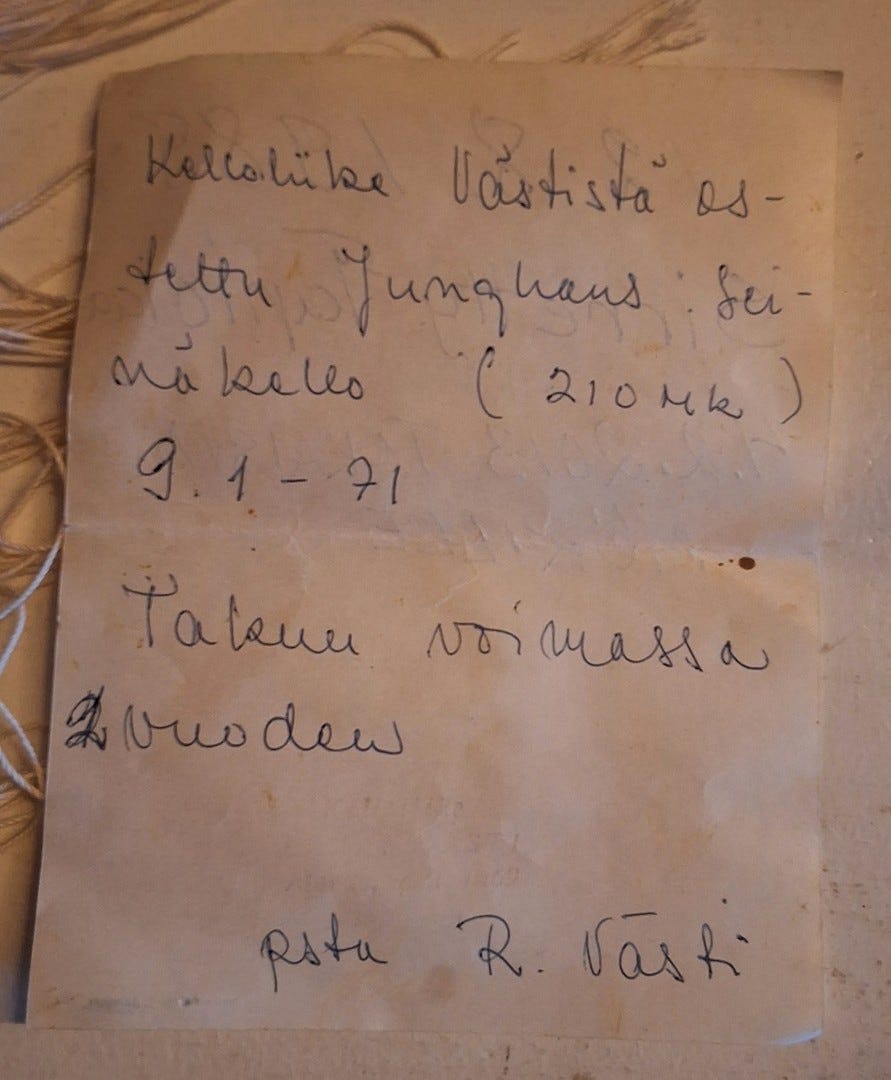 Kelloliike Västistä os-
tettu Junghans sei-
näkello (210 mk)
9.1 - 71
Takuu voimassa
vuoden
psta R. Västi